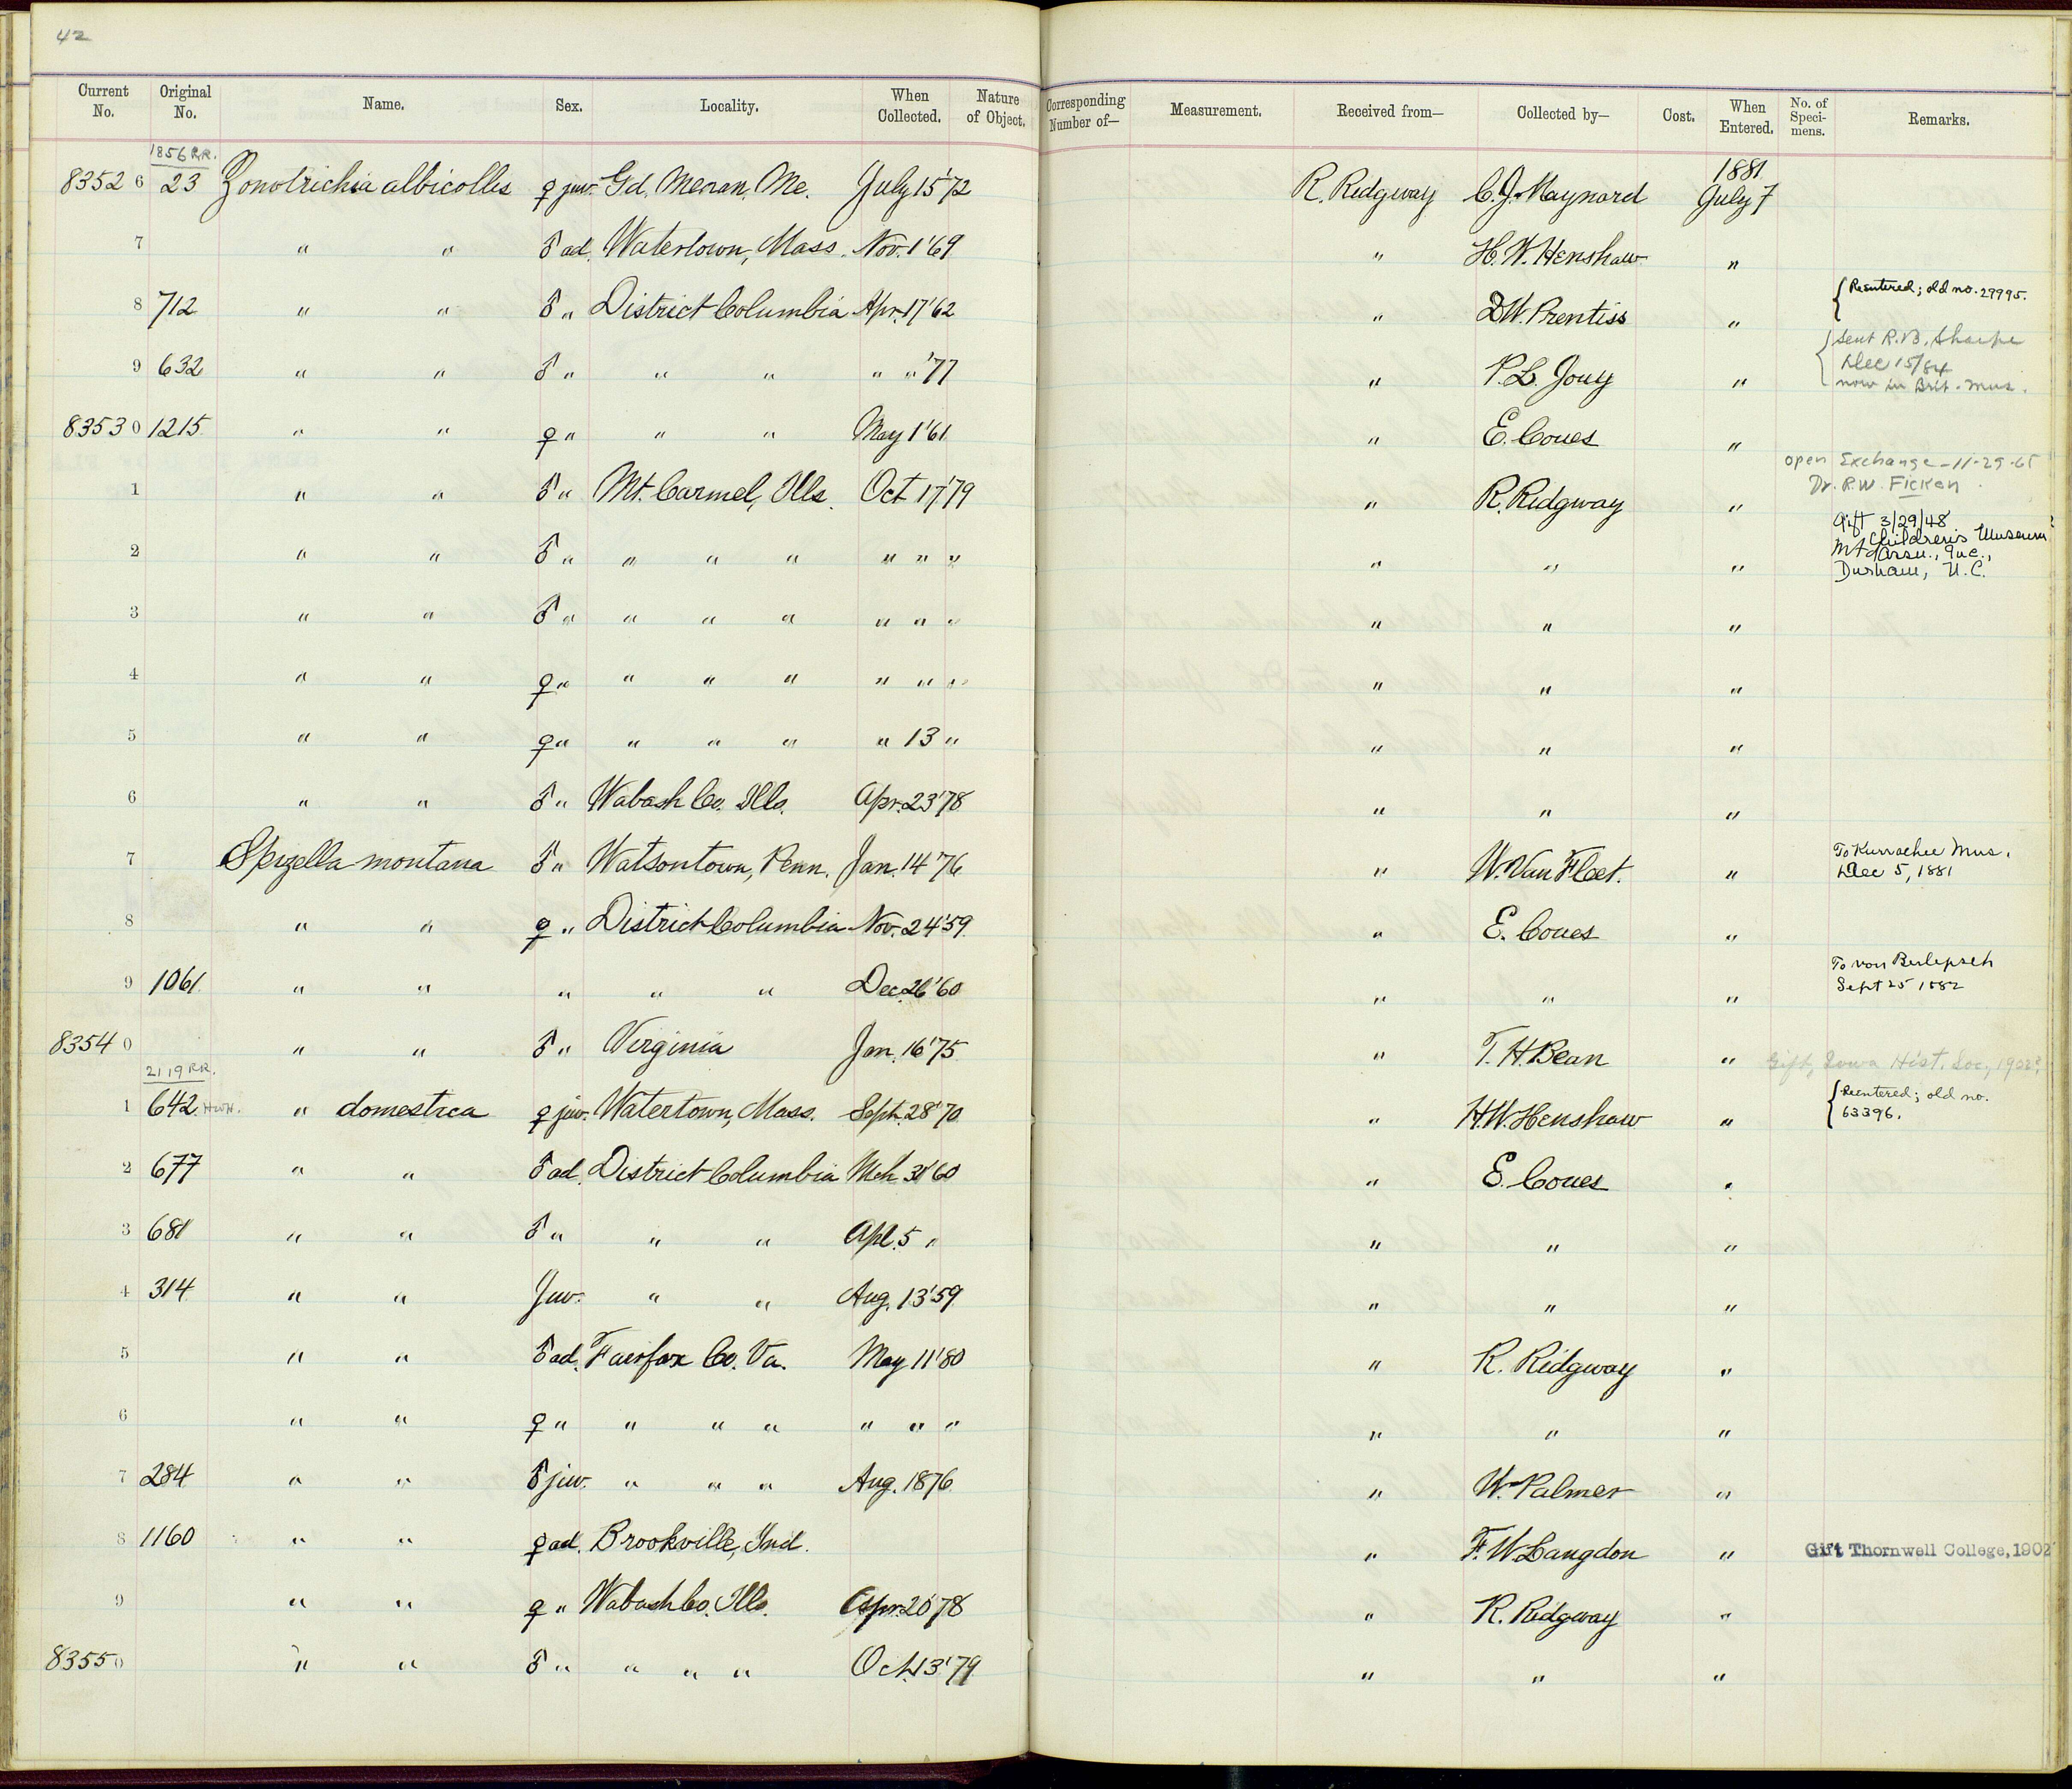 42
Current No. Original No. Name. Sex. Locality. When Collected. Nature of Object. Corresponding Number of— Measurement. Received from— Collected by— Cost. When Entered. No. of Specimens. Remarks.
1856 R.R. 1881
83526 23 Zonotrichia albicollis ♀ juv. Gd. Menan, Me. July 15 '72 R. Ridgway C. J. Maynard July 7
7 " " ♂ ad. Watertown, Mass. Nov. 1 '69 " H. W. Henshaw "
8 712 " " ♂ " District Columbia Apr. 17 '62 " D. W. Prentiss " { Reentered; old no. 29995.
9 632 " " ♂ " " " " " '77 " P. L. Jouy " { Sent R. B. Sharpe
Dec 15/84
now in Brit. Mus.
83530 1215 " " ♀ " " " May 1 '61 " E. Coues "
1 " " ♂ " Mt. Carmel, Ills. Oct 17 '79 " R. Ridgway " open Exchange - 11-29-65
Dr. R.W. Ficken.
2 " " ♂ " " " " " " " " " " Gift 3/29/48
Children's Museum
Durham, N.C.
3 " " ♂ " " " " " " " " " "
4 " " ♀ " " " " " " " " " "
5 " " ♀ " " " " " 13 " " " "
6 " " ♂ " Wabash Co. Ills. Apr. 23 '78 " " "
7 Spizella montana ♂ " Watsontown, Penn. Jan. 14 '76 " W. Van Fleet. " To Kurrachee Mus.
Dec 5, 1881
8 " " ♀ " District Columbia Nov. 24 '59 " E. Coues "
9 1061 " " " " " Dec. 26 '60 " " " To von Berlepsch
Sept 25 1882
83540 " " ♂ " Virginia Jan. 16 '75 " T. H. Bean " Gift, Iowa Hist. Soc., 1902?
2119 R.R.
1 642 HWH. " domestica ♀ juv. Watertown, Mass. Sept. 28 '70 " H. W. Henshaw " { Reentered; old no.
63396.
2 677 " " ♂ ad. District Columbia Mch 31 '60 " E. Coues "
3 681 " " ♂ " " " Apl. 5 " " " "
4 314 " " Juv. " " Aug. 13 '59 " " "
5 " " ♂ ad. Fairfax Co. Va. May 11 '80 " R. Ridgway "
6 " " ♀ " " " " " " " " " "
7 284 " " ♂ juv. " " " Aug. 1876 " W. Palmer "
8 1160 " " ♀ ad. Brookville, Ind. " F. W. Langdon " Gift Thornwell College, 1902
9 " " ♀ " Wabash Co. Ills. Apr. 20 '78 " R. Ridgway "
83550 " " ♂ " " " " Oct. 13 '79 " " "